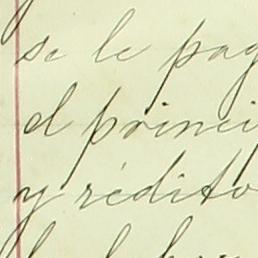 se le pag
el princi
y rédito